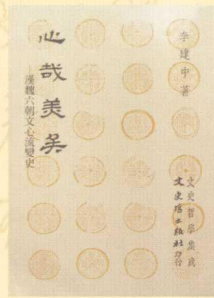 李建中 著
心哉美矣
漢魏六朝文心流變史
文史哲學集成
文史哲出版社印行